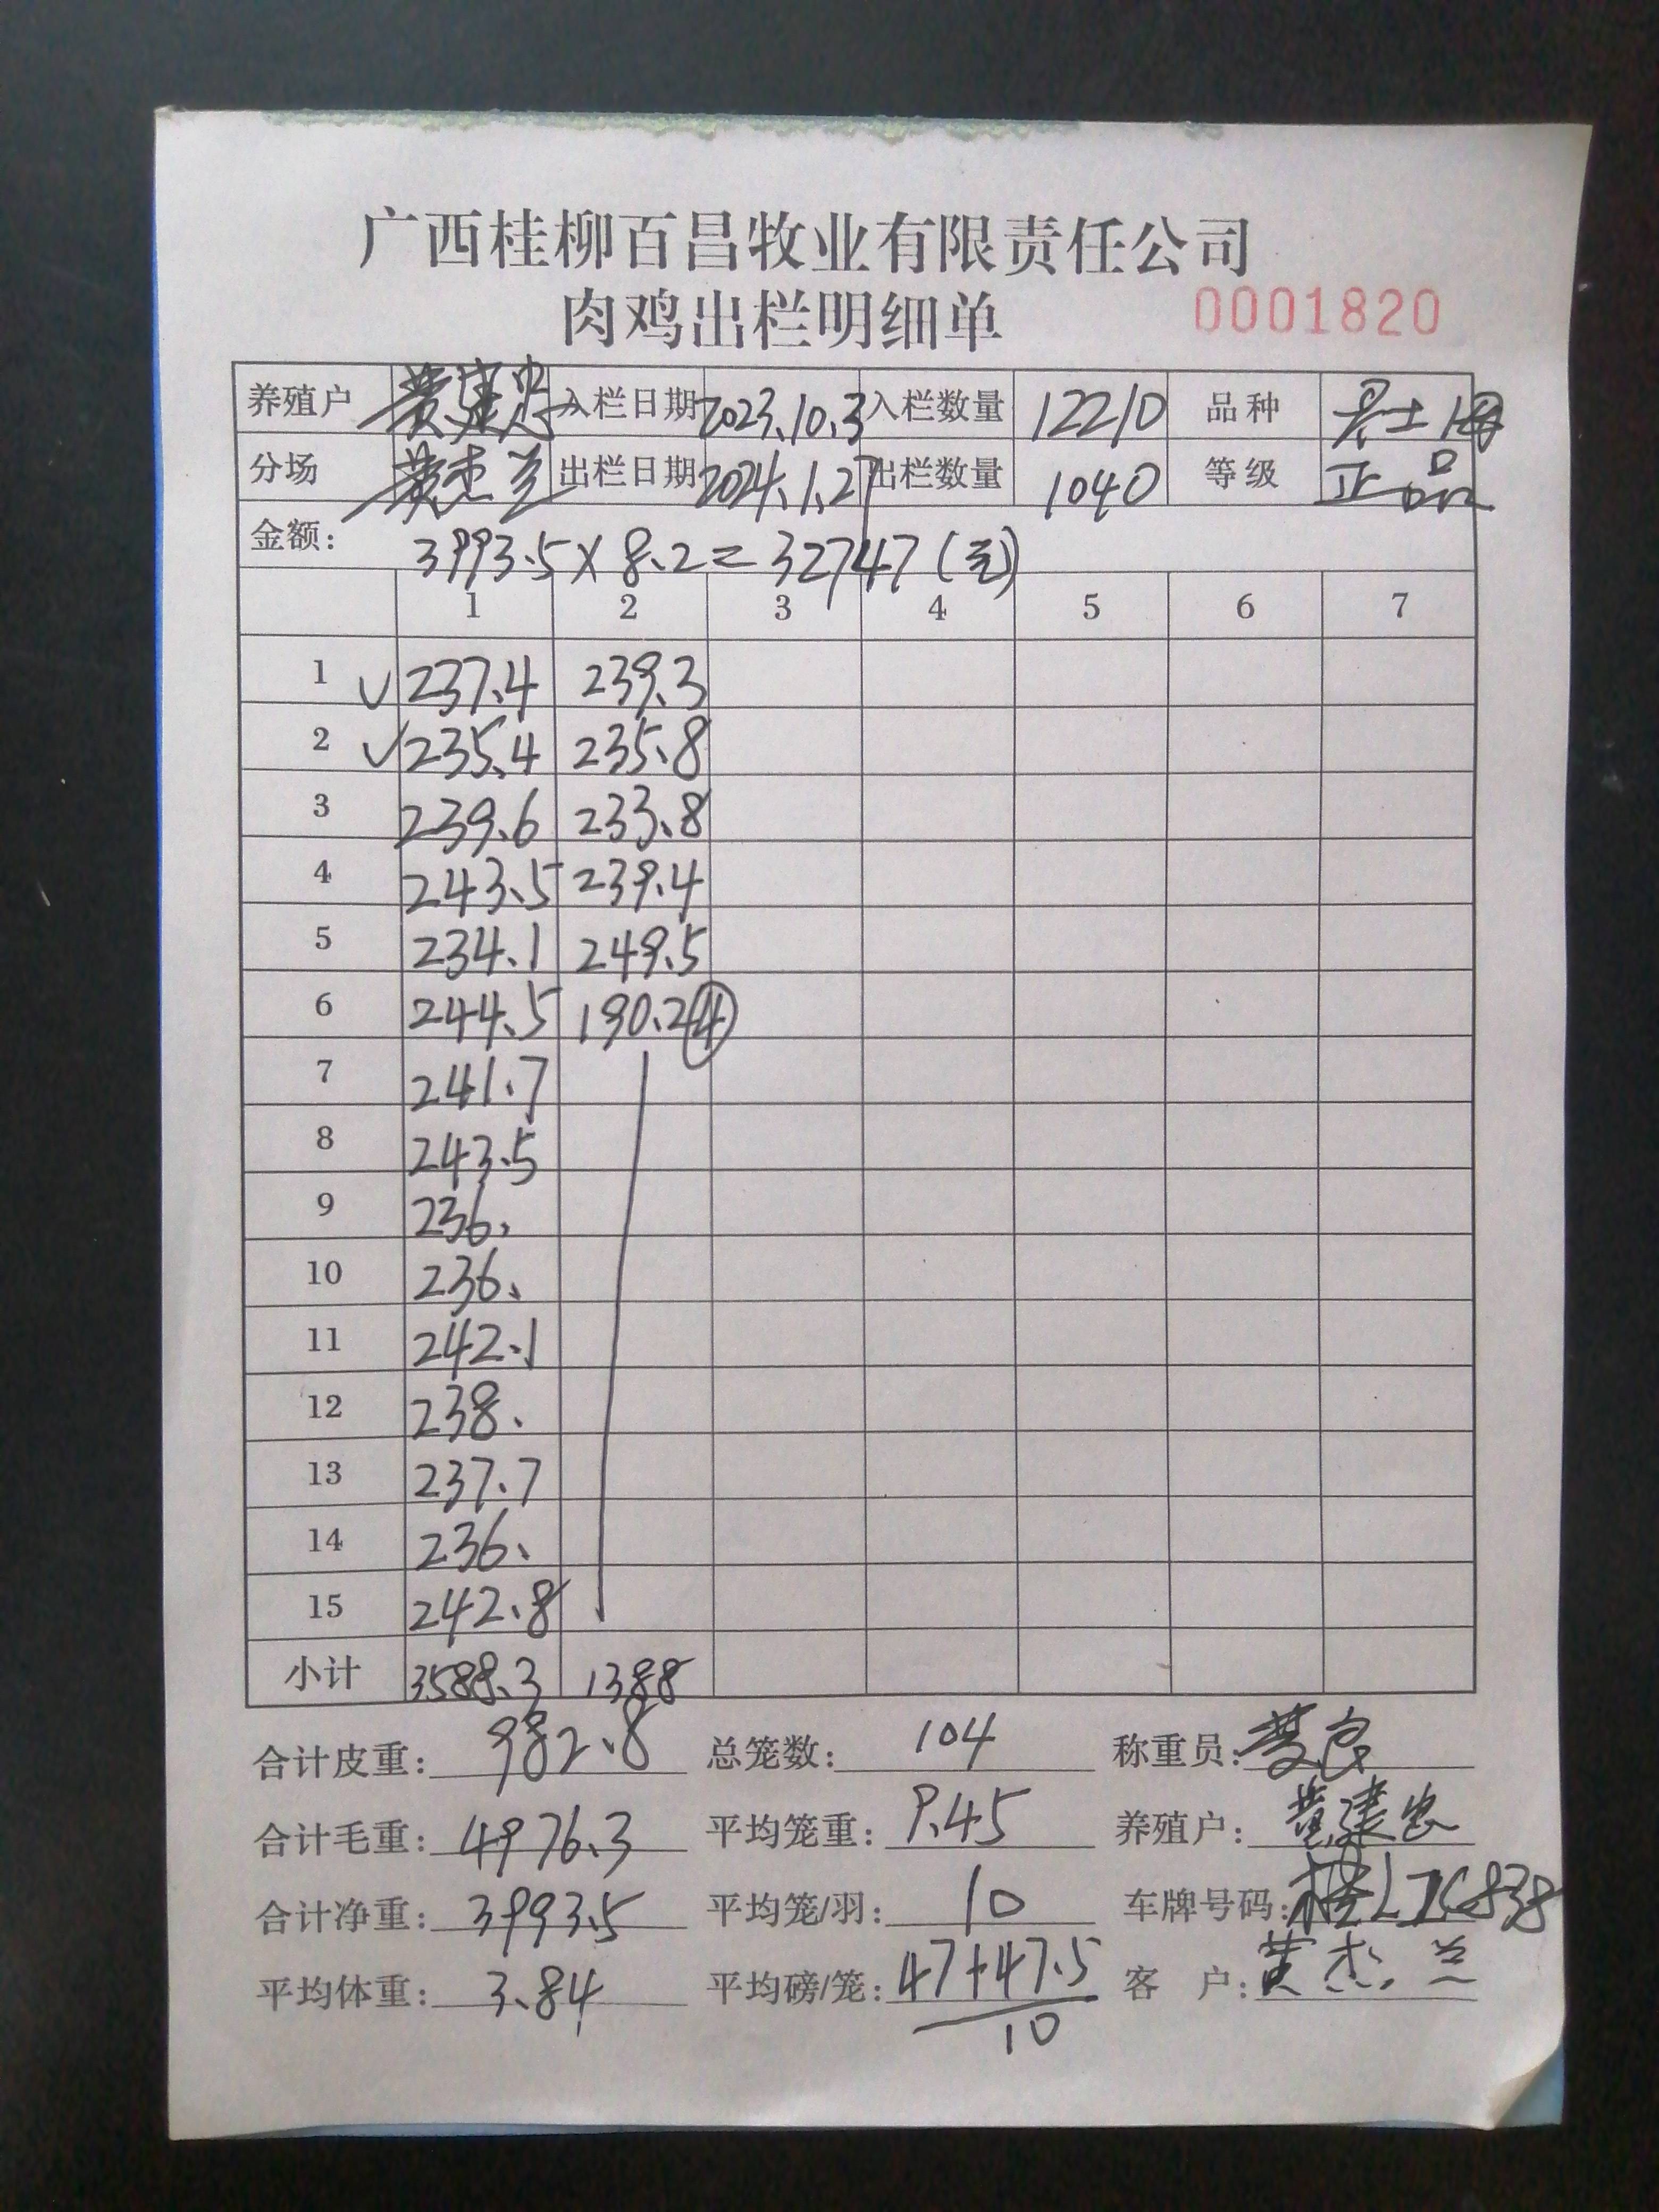 广西桂柳百昌牧业有限责任公司
肉鸡出栏明细单 0001820
养殖户 黄建忠 入栏日期 2023.10.3 入栏数量 12210 品种
分场 黄杰兰 出栏日期 2024.1.27 出栏数量 1040 等级 正品
金额: 3993.5×8.2=32747(元)
1 2 3 4 5 6 7
1 ✓ 237.4 239.3
2 ✓ 235.4 235.8
3 239.6 233.8
4 243.5 239.4
5 234.1 249.5
6 244.5 190.2 ④
7 241.7
8 243.5
9 236.
10 236.
11 242.1
12 238.
13 237.7
14 236.
15 242.8
小计 3588.3 1388
合计皮重: 982.8 总笼数: 104 称重员:
合计毛重: 4976.3 平均笼重: 9.45 养殖户: 黄建忠
合计净重: 3993.5 平均笼/羽: 10 车牌号码:
平均体重: 3.84 平均磅/笼: 47+47.5 客户: 黄杰兰
10